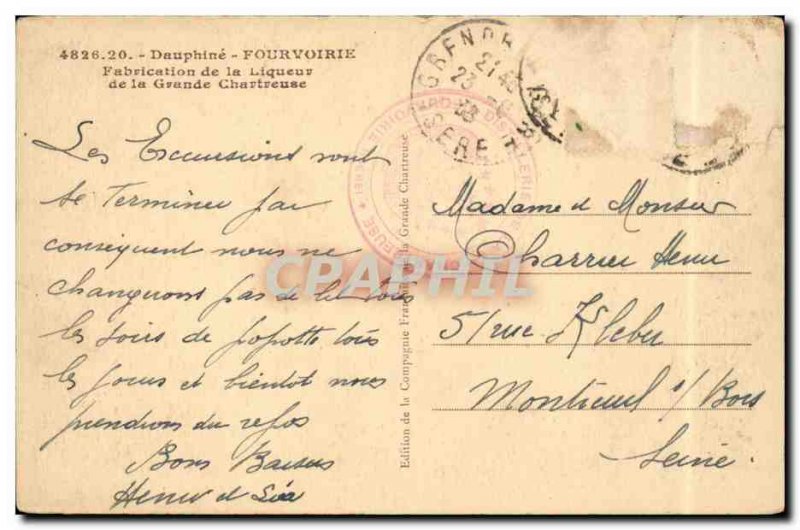 4826.20. - Dauphiné - FOURVOIRIE
Fabrication de la Liqueur
de la Grande Chartreuse
Les Excursions vont
se Terminer par
conséquent nous ne
changerons pas de lit tous
les soirs de popotte tous
les jours et bientot nous
prendrons du repos
Bons Baisers
Henri et
Edition de la Compagnie Française de la Grande Chartreuse
GRENOBLE
21 45
23
38
ISERE
DISTILLERIE
CPAPHIL
Madame et Monsieur
Charrier Henri
51 rue Kleber
Montreuil s/ Bois
Seine.